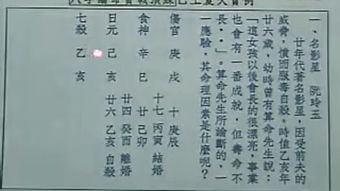 一、名影星 阮玲玉
廿年代著名影星，因受前夫的
威脅，憤而服毒自殺。時值乙亥年
廿六歲，幼時曾有算命先生說：
「這女孩以後會長的很漂亮，事業
也會有一番成就，但壽命不
長…。」算命先生所論斷的，一
一應驗。其命理因素是什麼呢？
傷官 庚戌
食神 辛巳
日元 己亥
七殺 乙亥
十 庚辰
廿 己卯
十七 丙寅 結婚
廿四 癸酉 離婚
廿六 乙亥 自殺